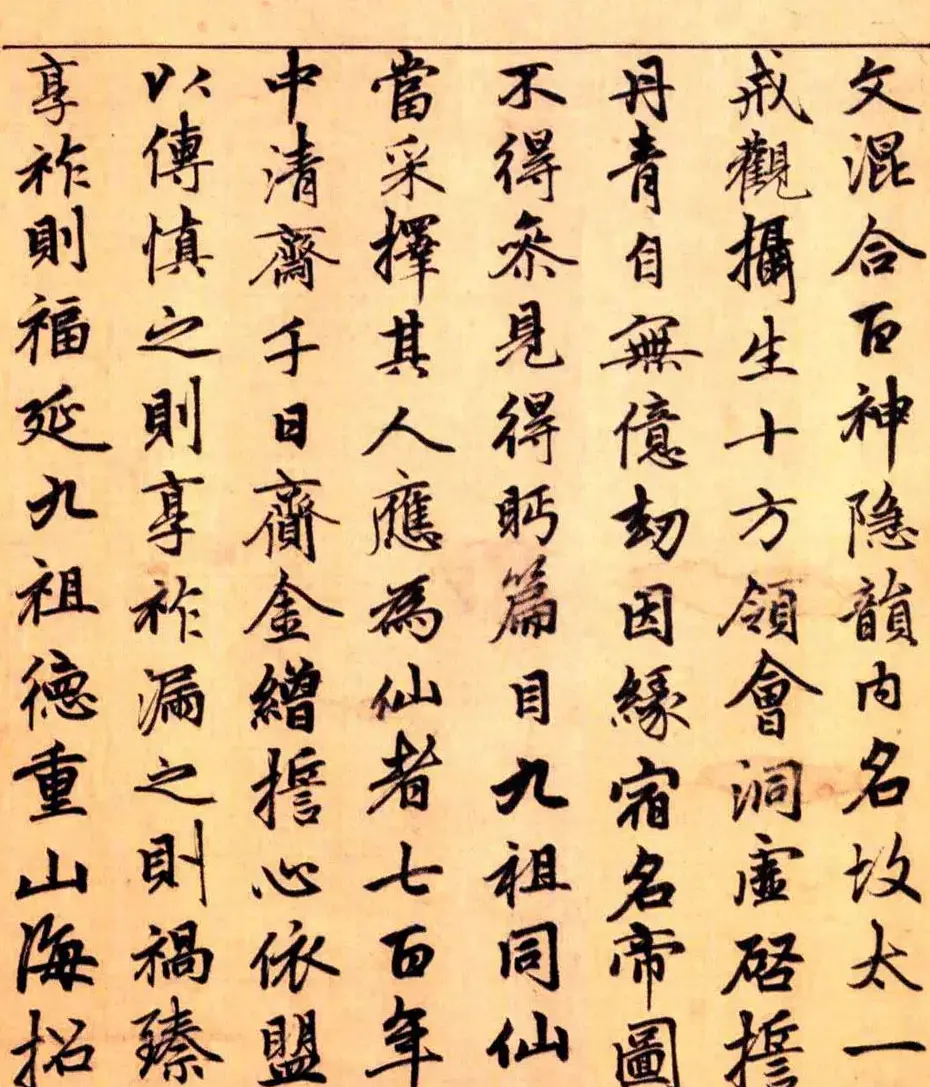 文混合百神隐韻内名故太一
戒觀攝生十方領會洞虛啓誓
丹青自無億劫因緣宿名帝圖
不得叅見得眄篇目九祖同仙
當采擇其人應為仙者七百年
中清齋千日齎金繒誓心依盟
以傳慎之則享祚漏之則禍臻
享祚則福延九祖德重山海招